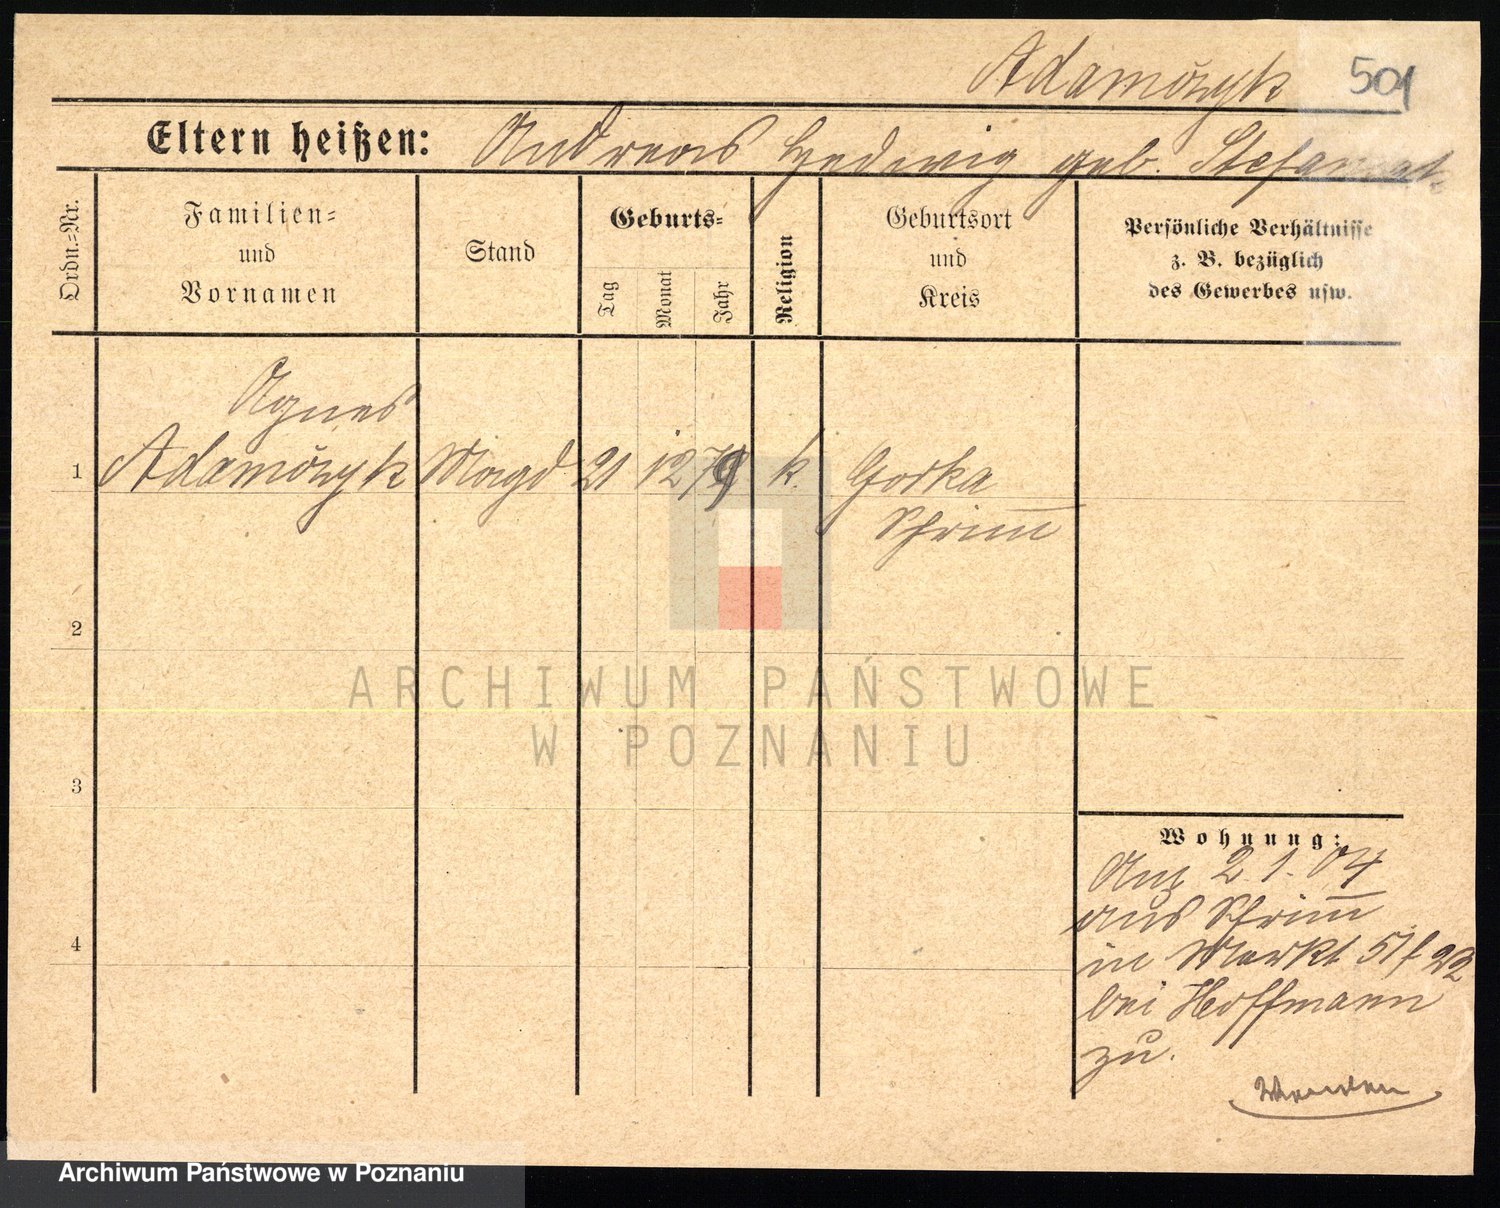 Adamczyk 501
Eltern heißen: Andreas Hedwig geb.
Ordn.=Nr.
Familien=
und
Vornamen
Stand
Geburts=
Tag
Monat
Jahr
Religion
Geburtsort
und
Kreis
Persönliche Verhältnisse
z. B. bezüglich
des Gewerbes usw.
Agnes
1 Adamczyk Magd 21 12 79 k. Gorka
Schrimm
2
3
4
ARCHIWUM PAŃSTWOWE
W POZNANIU
Wohnung:
Anz 2. 1. 04
aus Schrimm
in Markt 51/52
bei Hoffmann
zu.
Archiwum Państwowe w Poznaniu